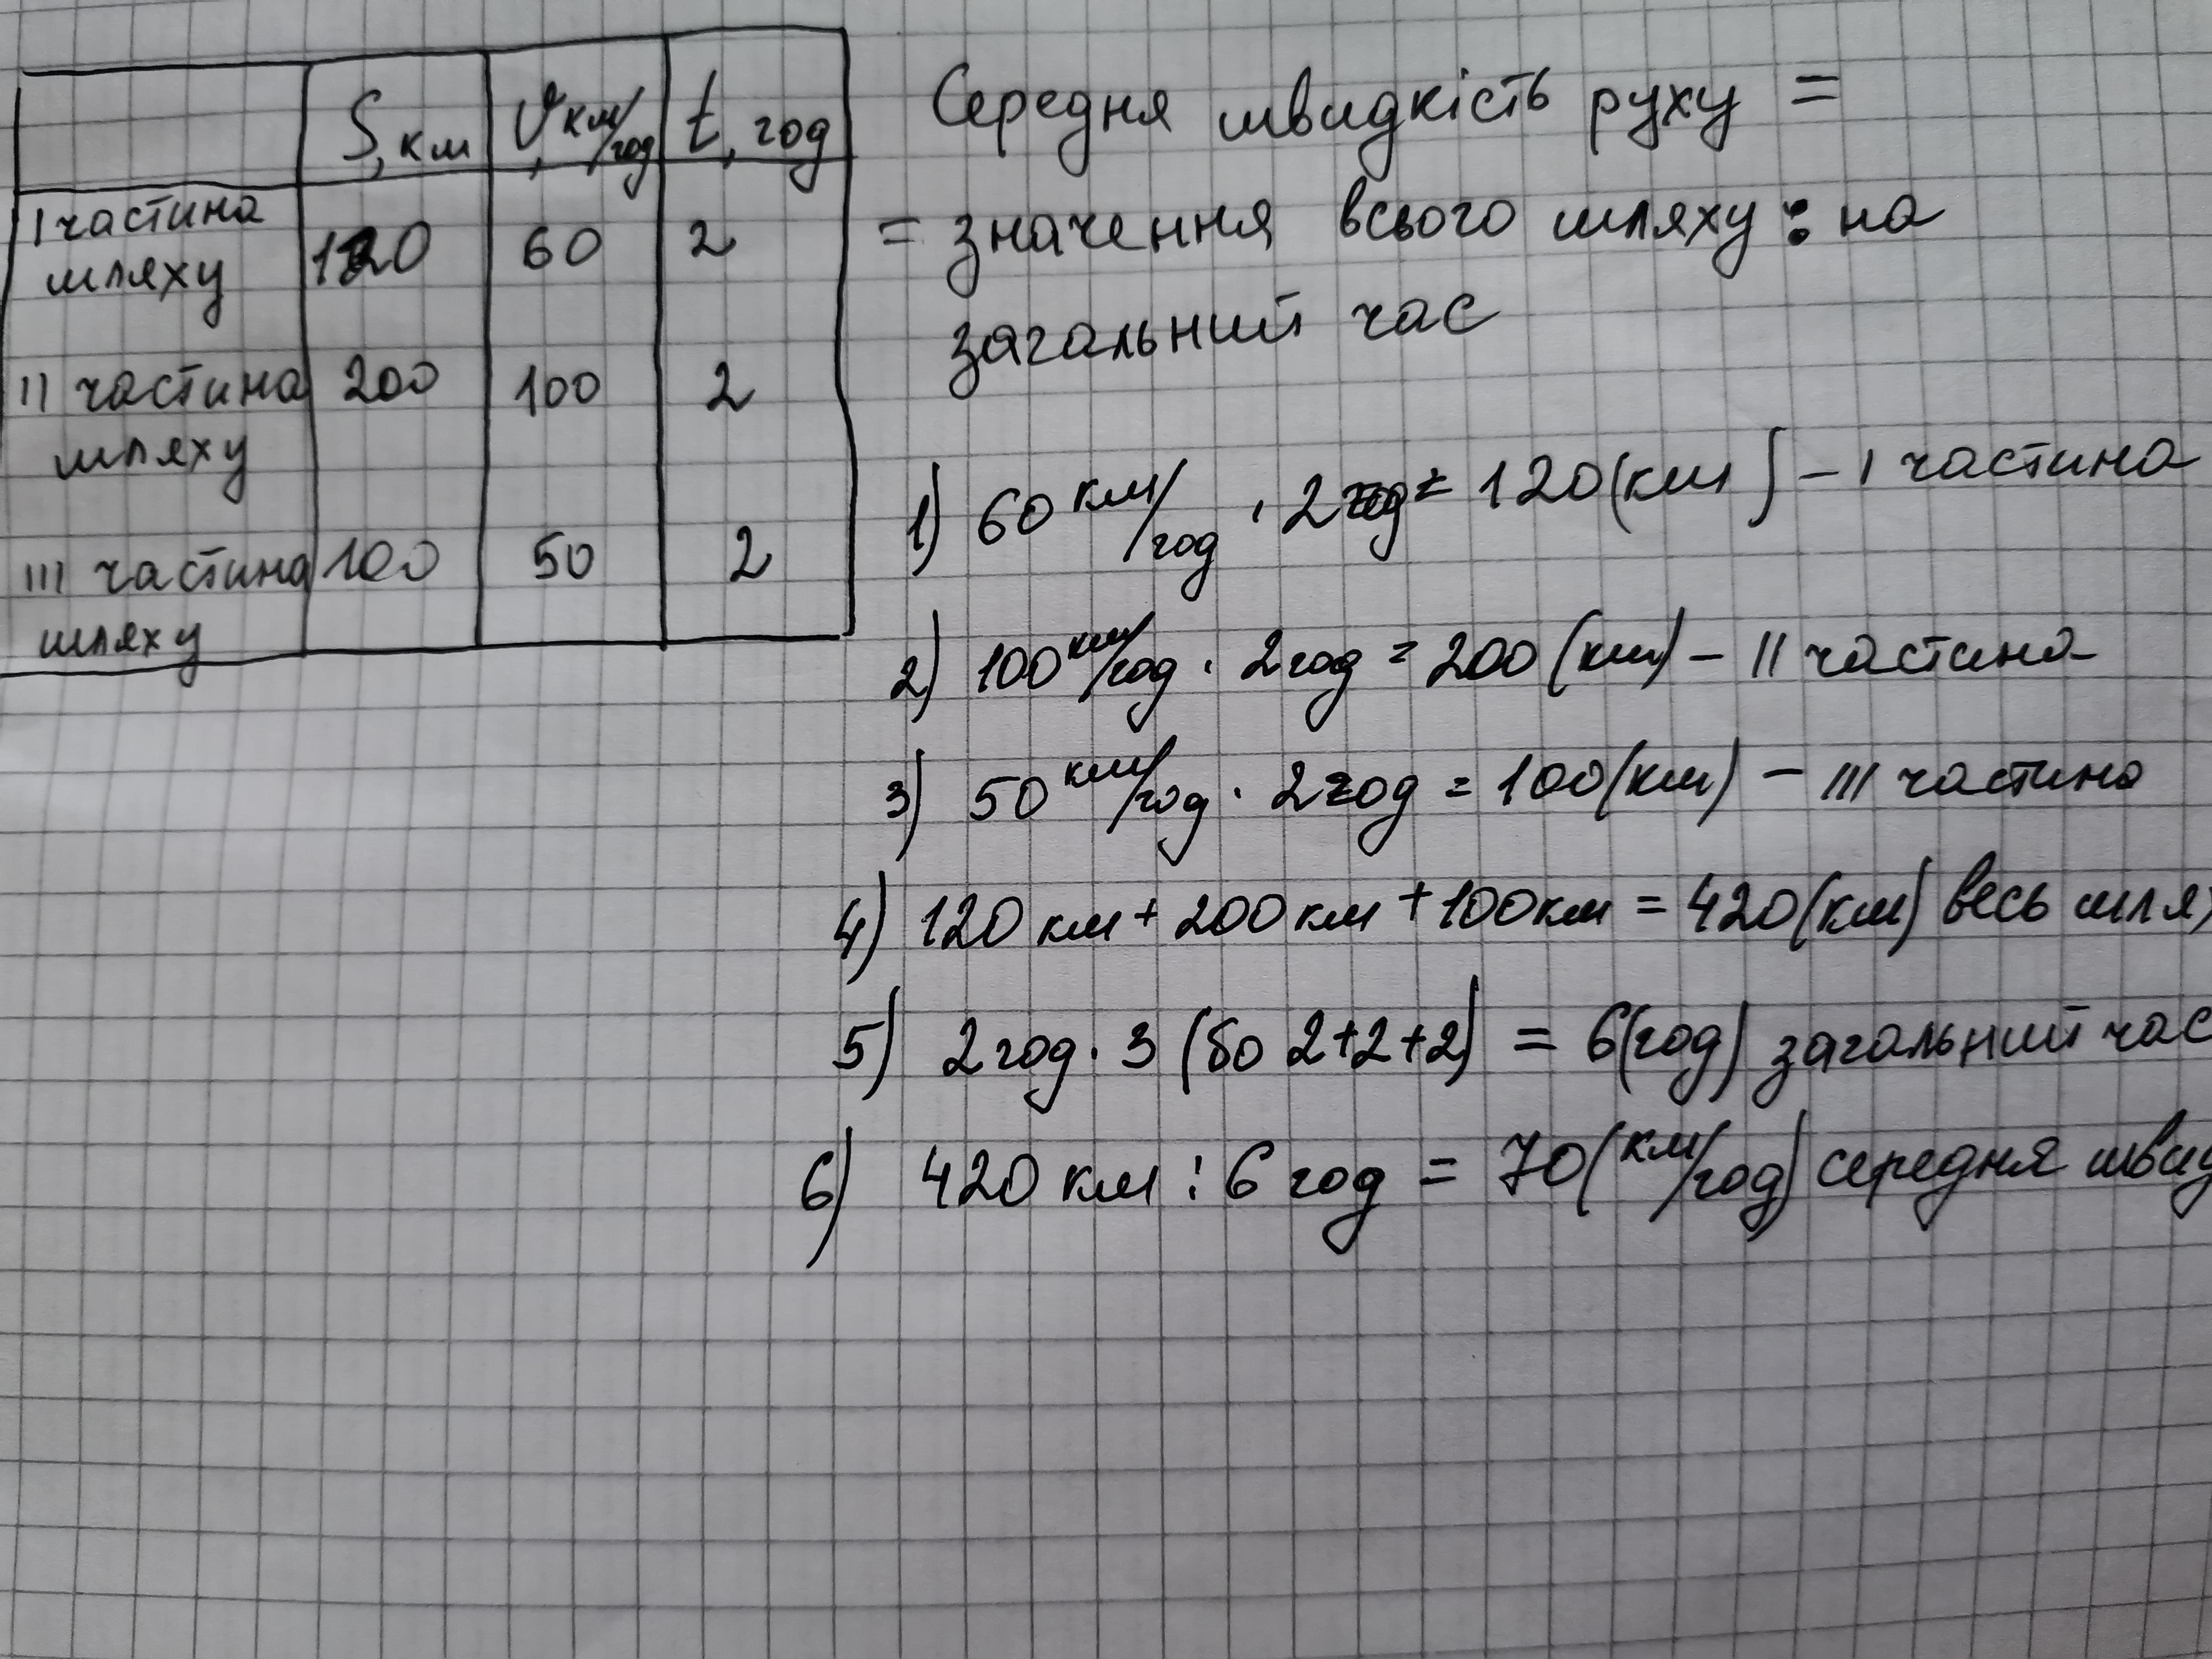 S, км
V, км/год
t, год
I частина
шляху
120
60
2
II частина
шляху
200
100
2
III частина
шляху
100
50
2
Середня швидкість руху =
= значення всього шляху : на
загальний час
1) 60 км/год · 2 год = 120 (км) – I частина
2) 100 км/год · 2 год = 200 (км) – II частина
3) 50 км/год · 2 год = 100 (км) – III частина
4) 120 км + 200 км + 100 км = 420 (км) весь шлях
5) 2 год · 3 (бо 2+2+2) = 6 (год) загальний час
6) 420 км : 6 год = 70 (км/год) середня швид